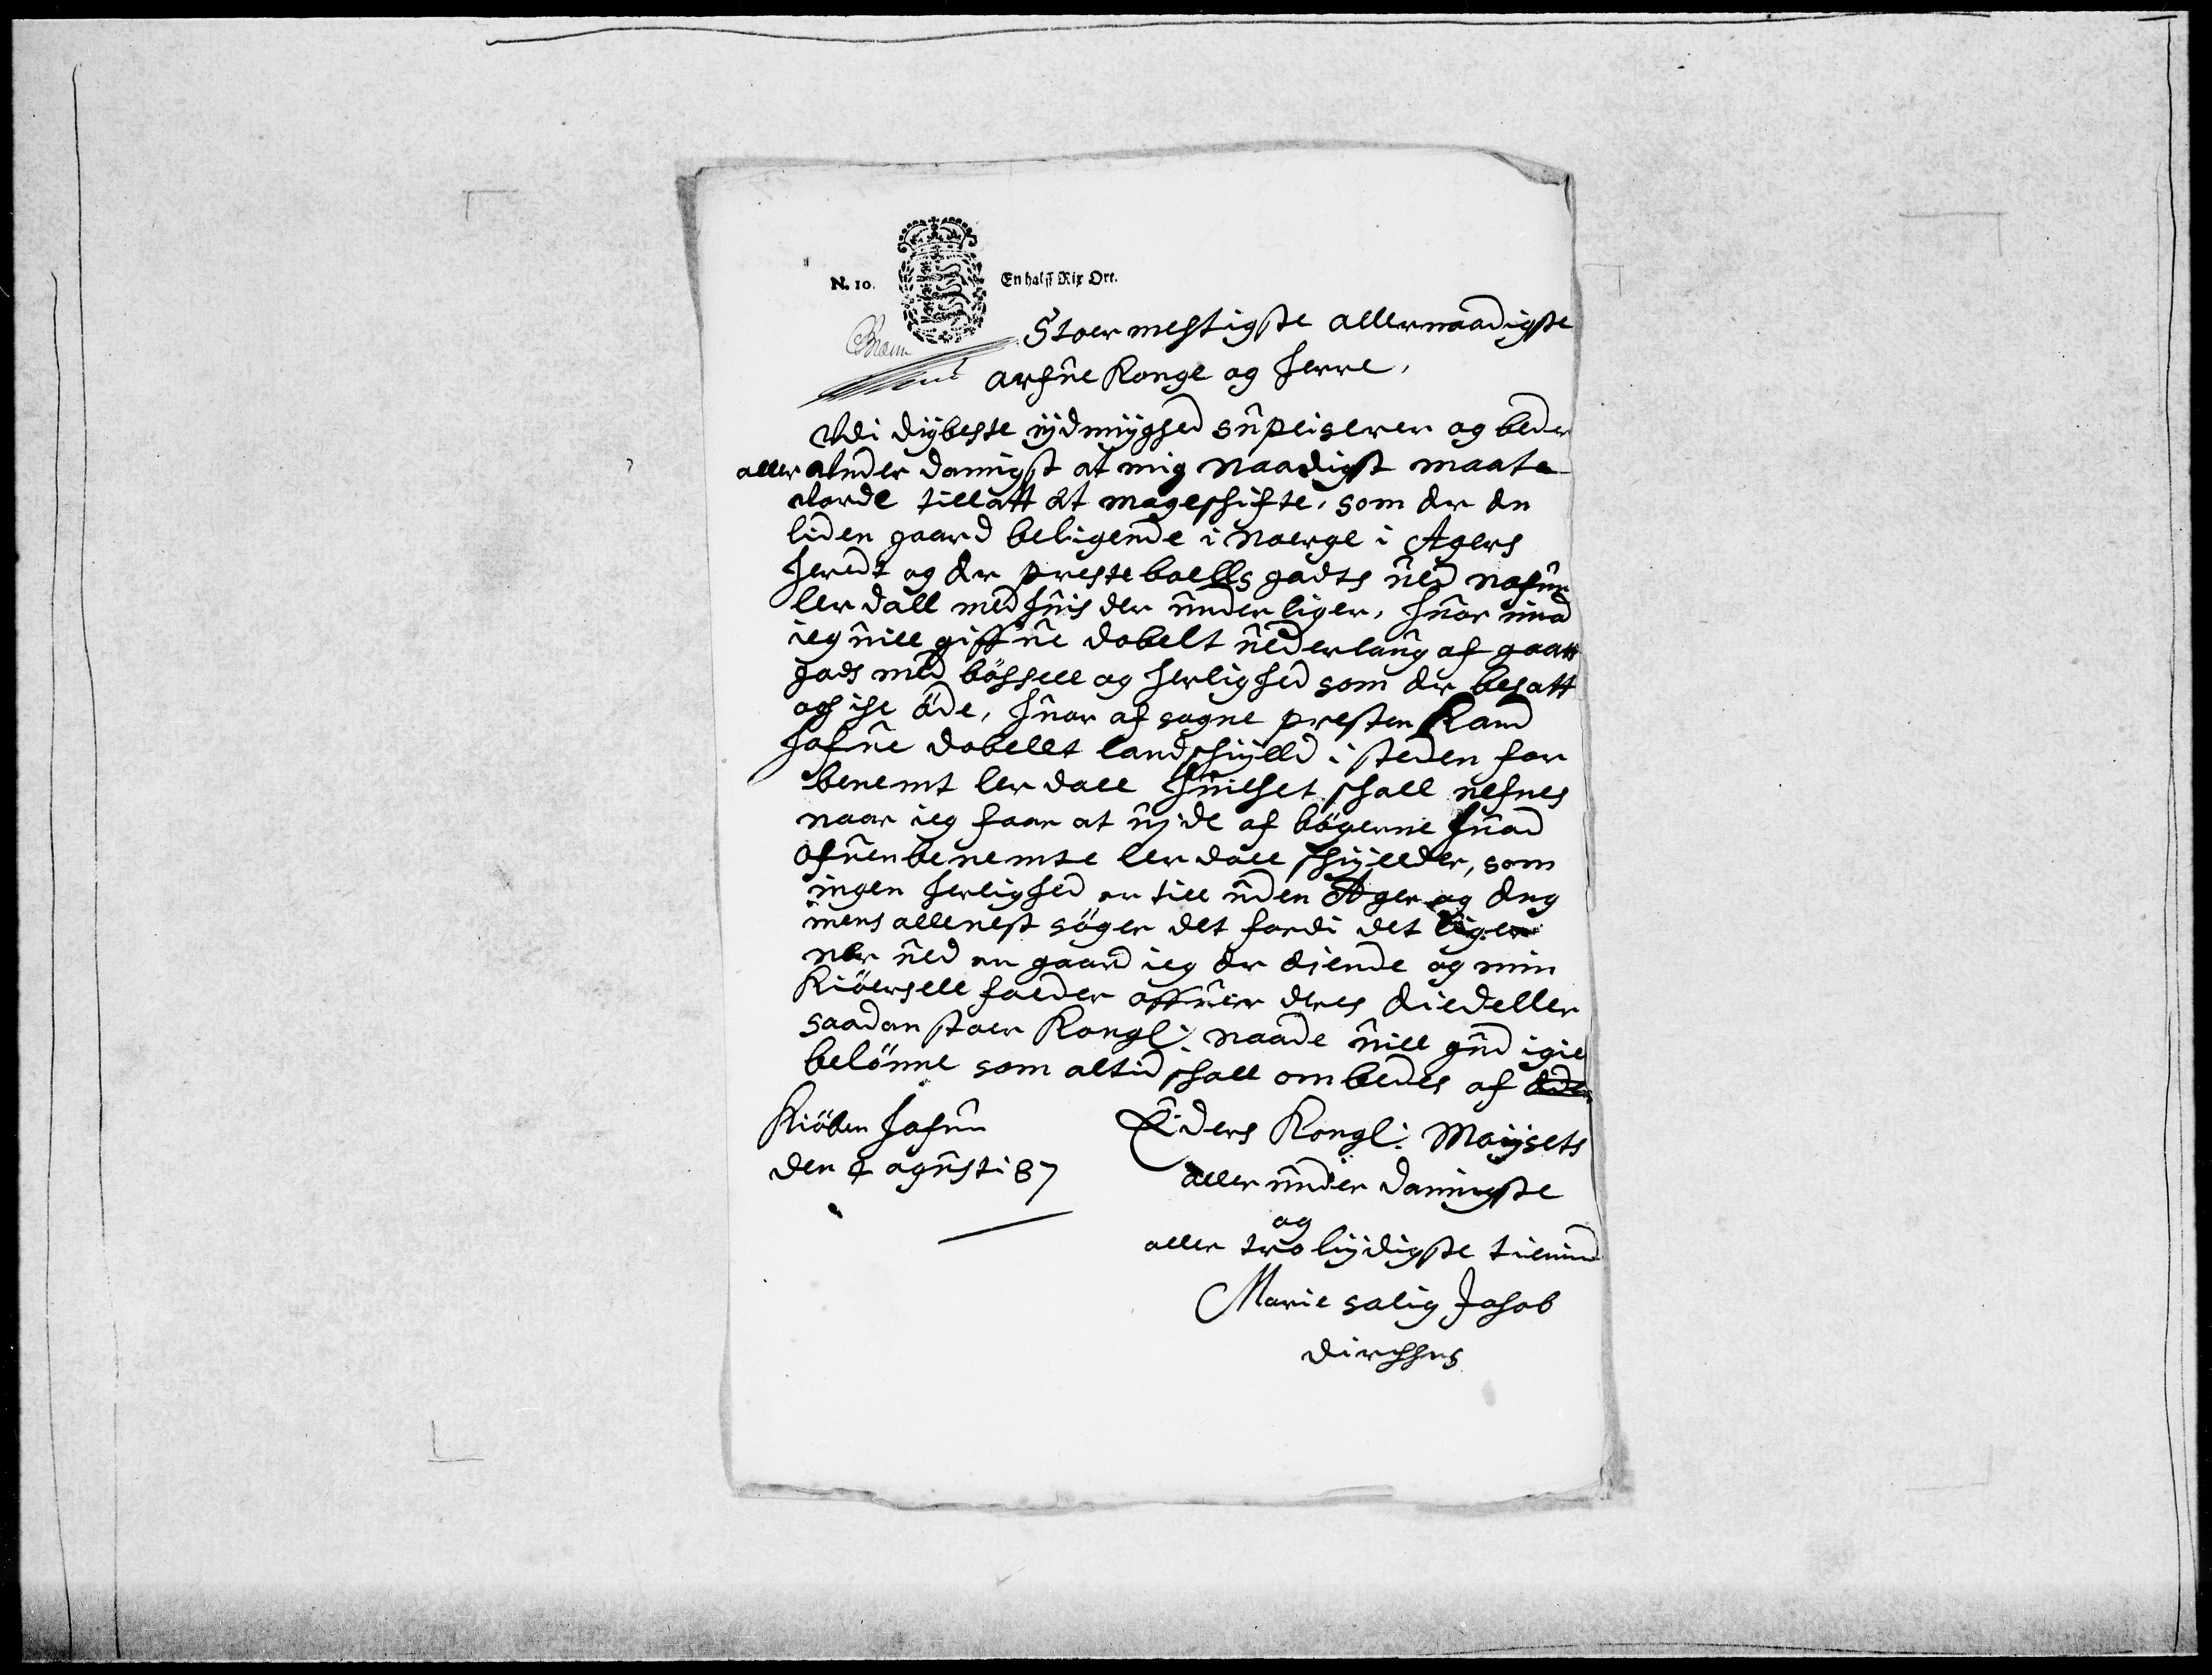 N. 10. En halff Rix Ort.
Stoer mehtigste allernaadigste
arfue Konge og herre,
Udi diybeste ÿdmyghed supliserer og beder
aller under danigst at mig naadigst maate
vorde tillatt at mageschifte, som er en
liden gaard beligende i Norge i Agers
heredt og er preste boells gadts ued nafn
ler dall med huis der under liger, huor imod
ieg uill giffue dobelt uederlaug af gaatt
gads med böhssell og herlighed som er besatt
og ihe öde, huor af sogne presten Kand
hafue dobellt landschylld i steden for
benemt ler dall huilhet schall nefnes
naar ieg faar at uide af bögerne huad
ofuenbenemte ler dall schyllder, som
ingen herlighed er till uden Ager og Eng
mens allenest söger det fordi det liger
ner ued en gaard ieg er eiende og min
Kiöersell falder offuer deres
saadan stoer Kongl: naade uill gud igie
belönne som altid schall ombedes af
Kiöben hafun Eders Kongl: Maysets
den 4 agusti 87 aller under danigste
og
aller tro lydigste tienind
Marie salig Jahob
Dirchsens